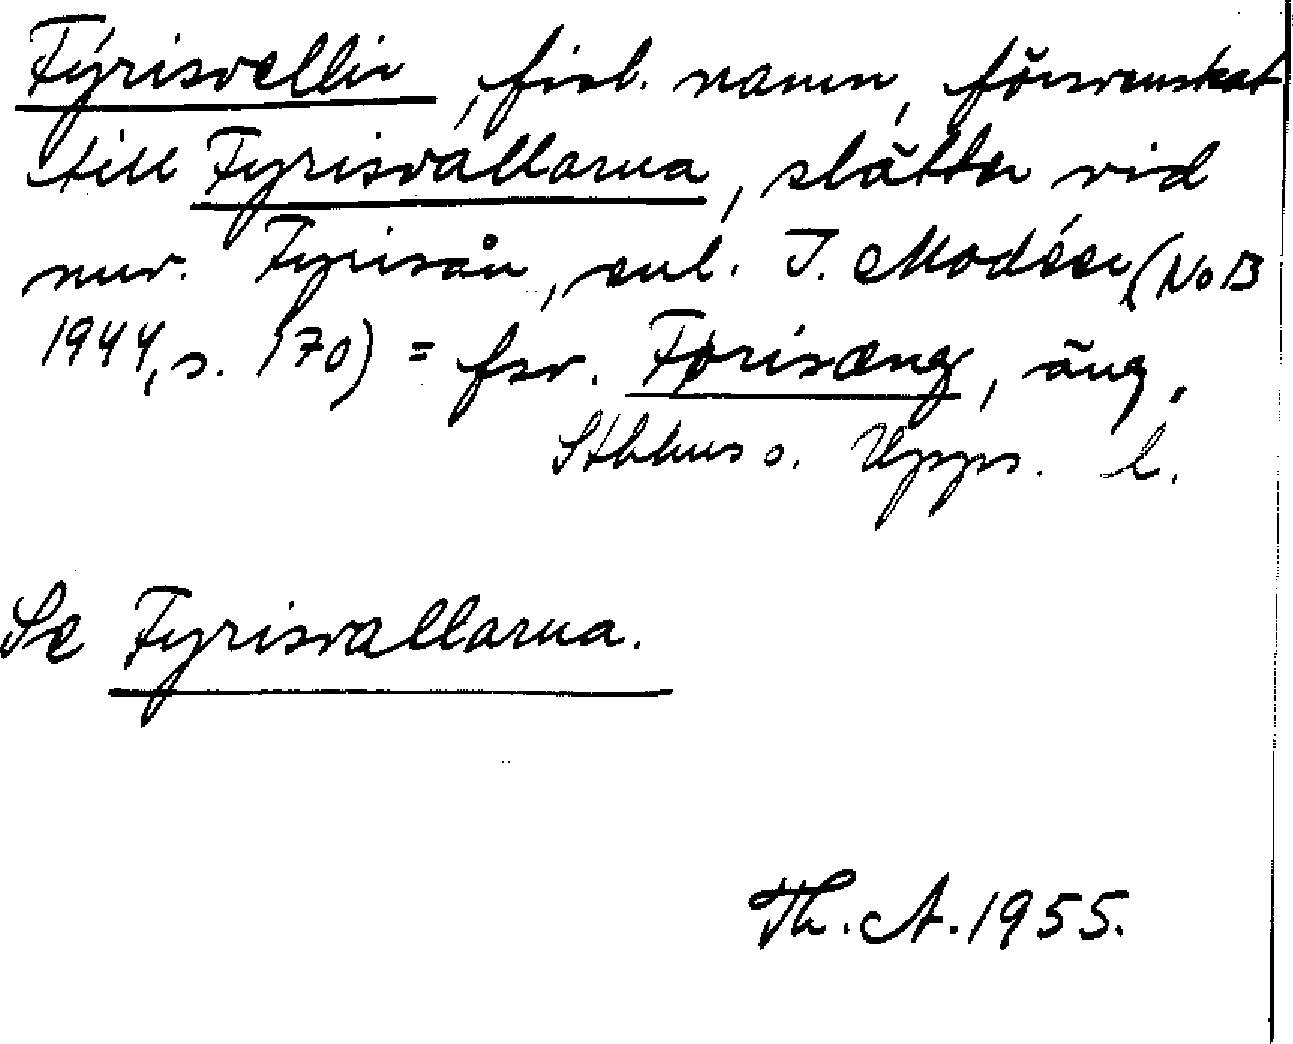 Fýrisvellir, fisl. namn, försvenskat
till Fyrisvallarna, slätter vid
nuv. Fyrisån, enl. I. Modéer (NoB
1944, s. 170) = fsv. Førisæng, äng,
Sthlms o. Upps. l.
Se Fyrisvallarna.
Th. A. 1955.